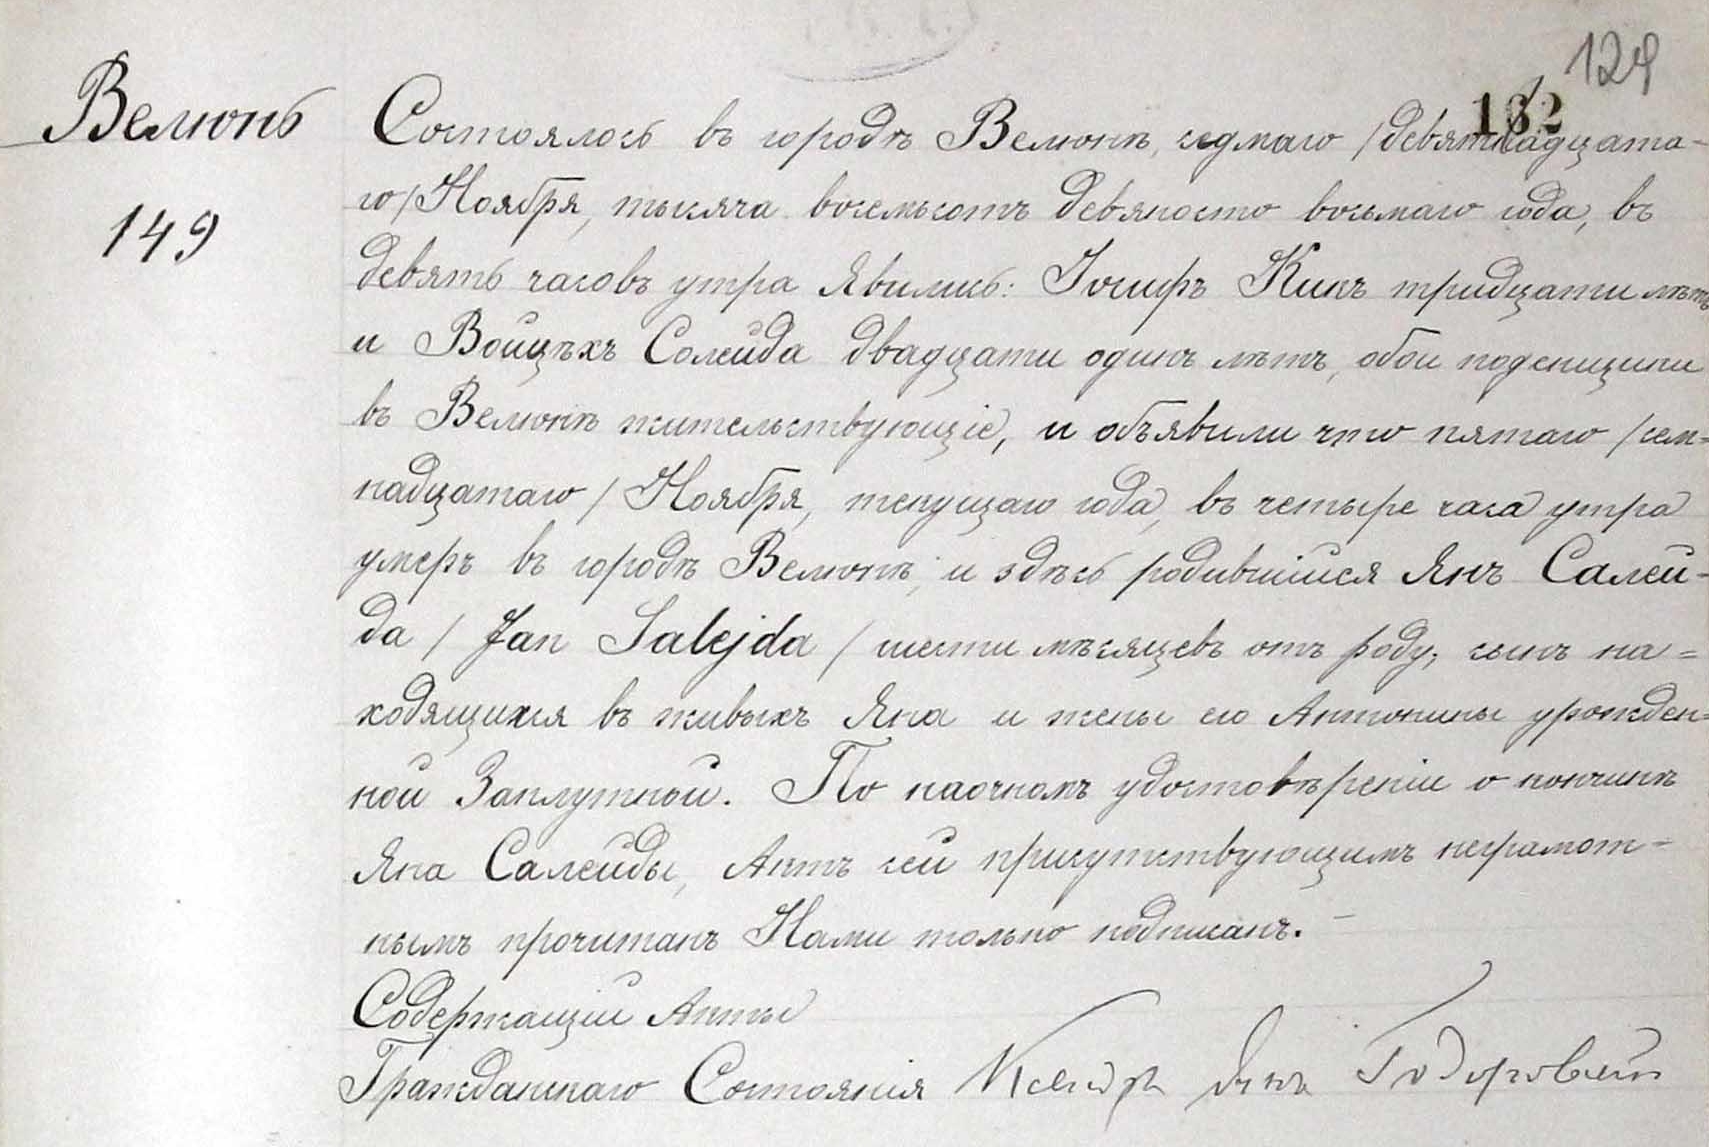 124
132
Велюнь
149
Состоялось въ городѣ Велюнѣ, седмаго /девятнадцата-
го/ Ноября, тысяча восемьсотъ девяносто восьмаго года, въ
девять часовъ утра явились: Іосифъ Кикъ тридцати лѣтъ
и Войцѣхъ Солейда двадцати одинъ лѣтъ, обои поденщики
въ Велюнѣ жительствующіе, и объявили что пятаго /сем=
надцатаго/ Ноября, текущаго года, въ четыре часа утра
умеръ въ городѣ Велюнѣ, и здѣсь родившійся Янъ Салей-
да / Jan Salejda / шести мѣсяцевъ отъ роду, сынъ на=
ходящихся въ живыхъ Яна и жены его Антонины урожден=
ной Заплутной. По наочномъ удостовѣреніи о кончинѣ
Яна Салейды, Актъ сей присутствующимъ неграмот=
нымъ прочитанъ Нами только подписанъ. —
Содержащій Акты
Гражданскаго Состоянія Ксендзъ Янъ